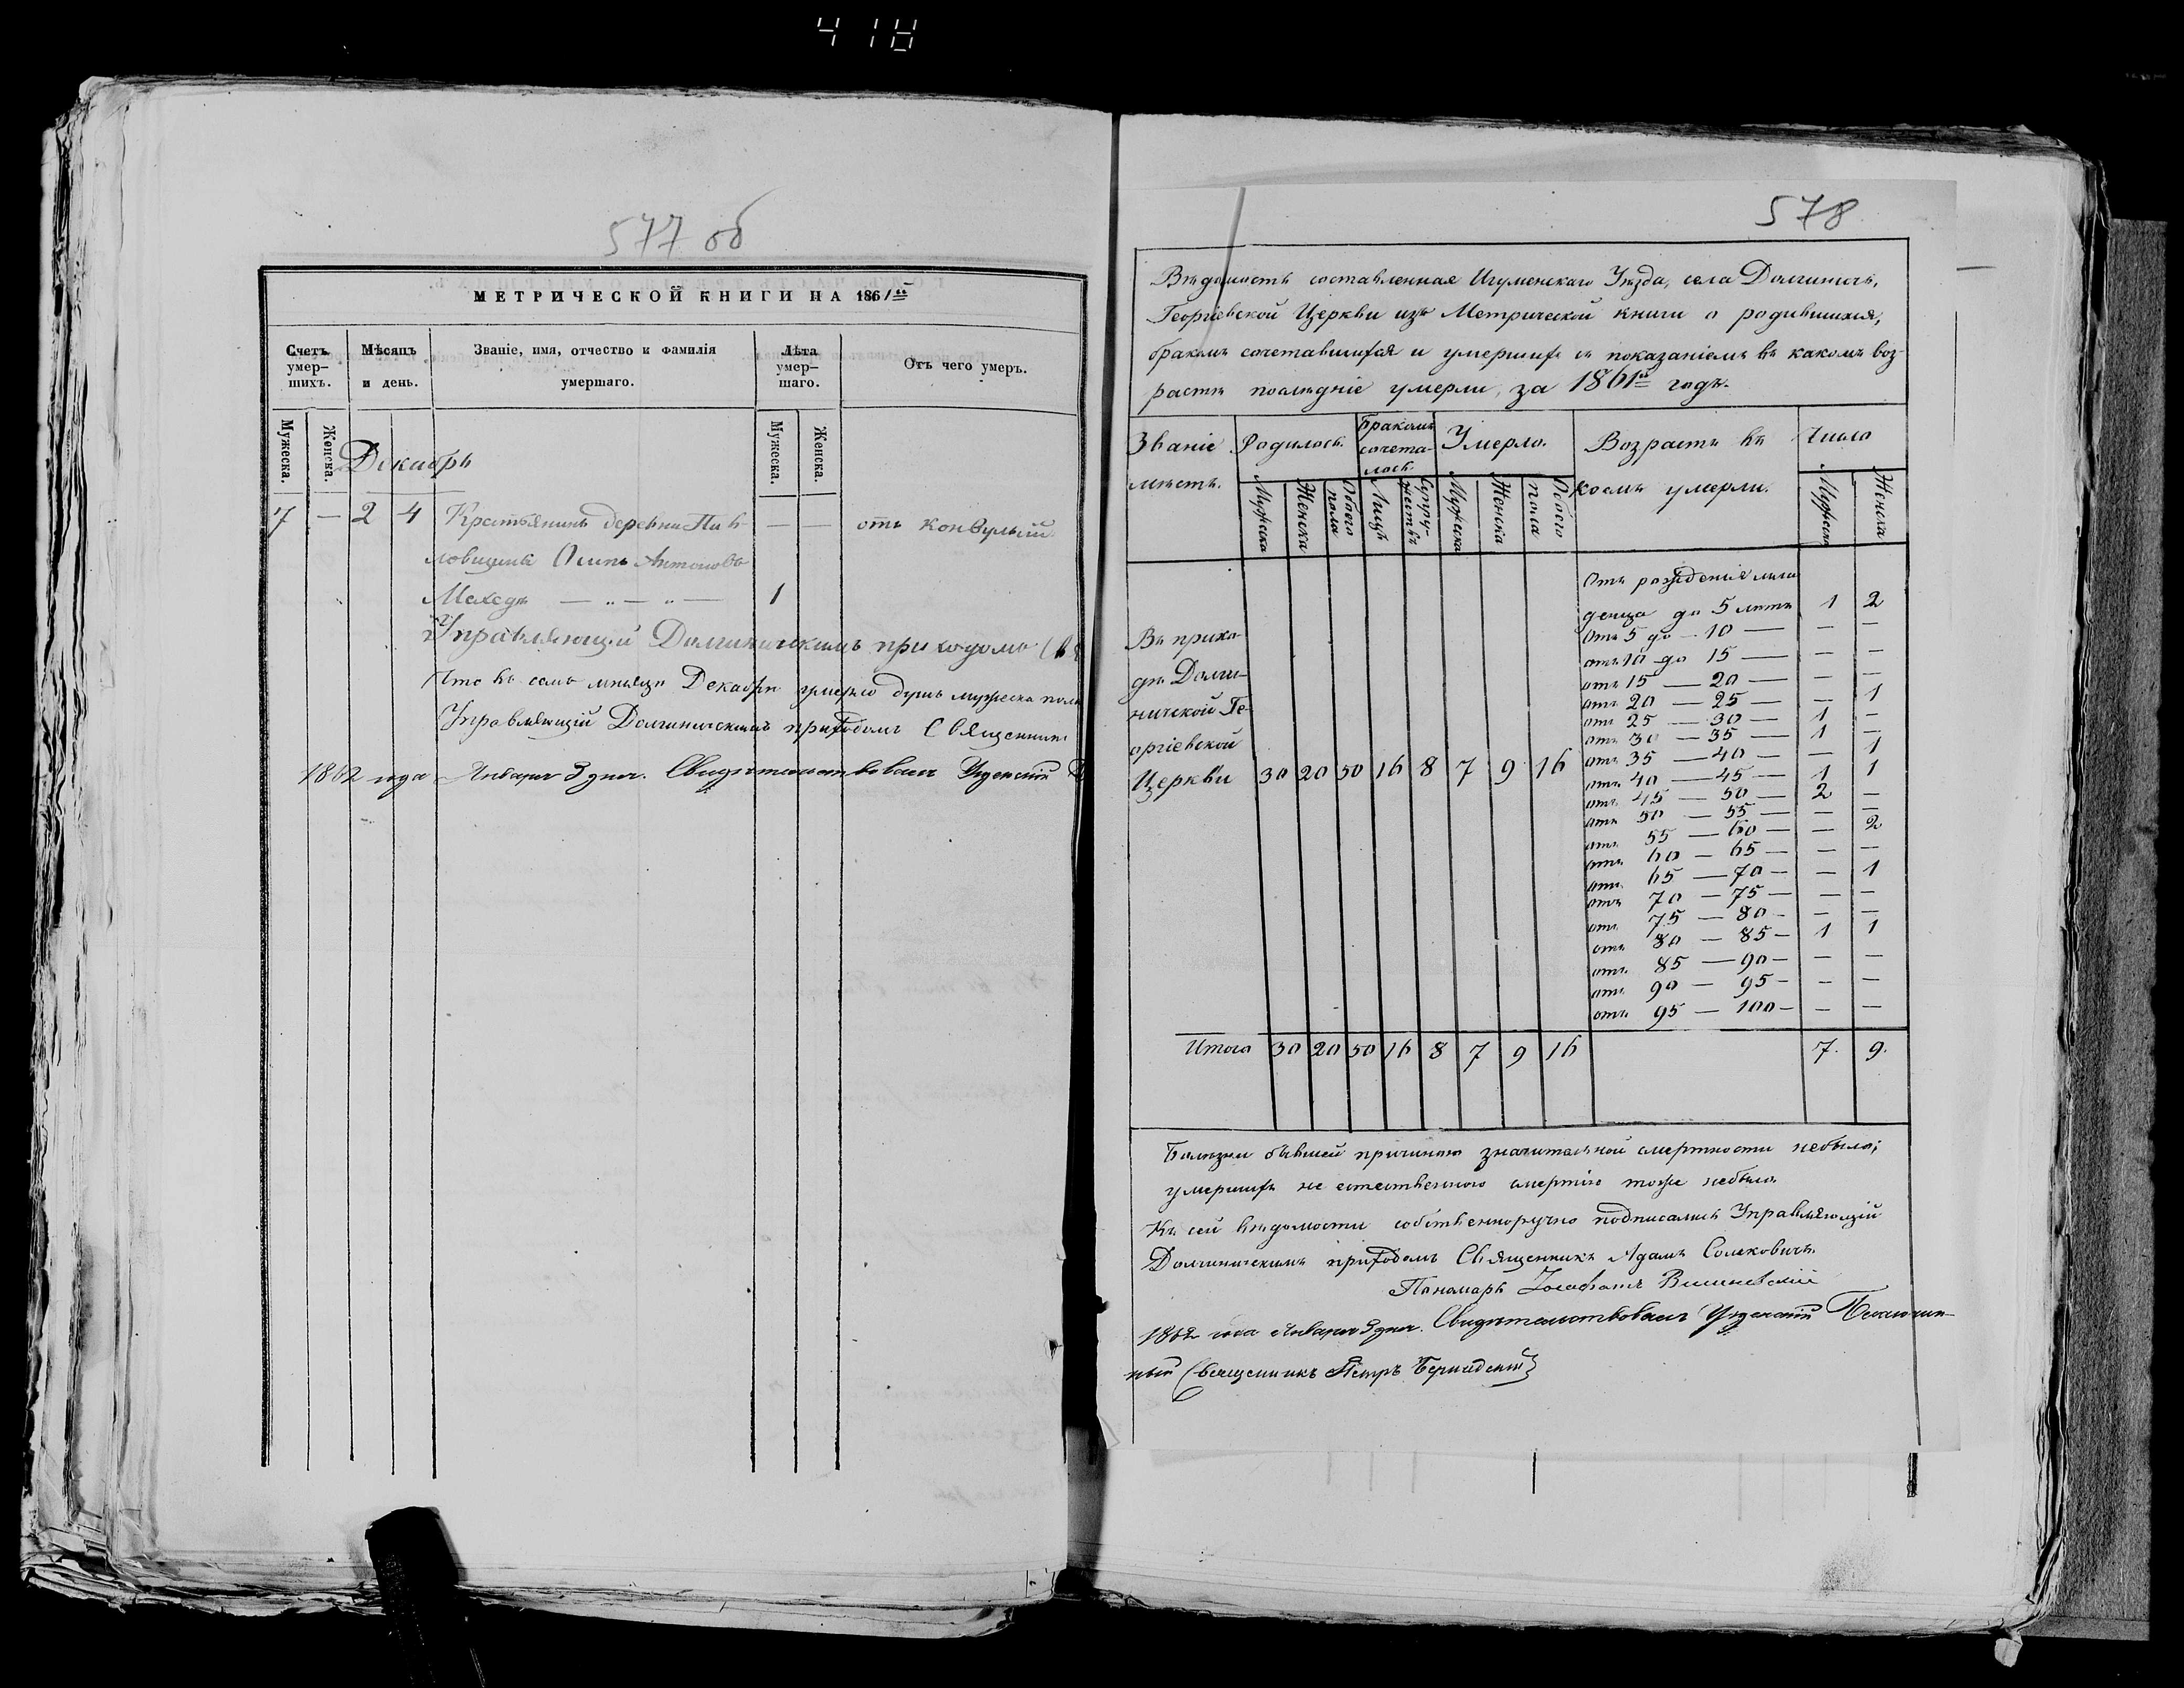 418
577 об
МЕТРИЧЕСКОЙ КНИГИ НА 1861й
Счетъ умер-шихъ.
Мѣсяцъ и день.
Званіе, имя, отчество и фамилія умершаго.
Лѣта умер-шаго.
Отъ чего умеръ.
Мужеска.
Женска.
Мужеска.
Женска.
Декабрь
7 — 2 4 Крестьянинъ деревни Пав- — — отъ конвульсій
ловщины Осипъ Антоновъ
1
Управляющій Долгиничскимъ приходомъ
Что въ семъ мѣсяцѣ Декабрѣ умерло душъ мужеска пола
Управляющій Долгиничскимъ приходомъ Священникъ
1862 года Января 3 дня. Свидѣтельствовалъ Узденскій
578
Вѣдомость составленная Игуменскаго Уѣзда, села Долгиничь,
Георгіевской Церкви изъ Метрической книги о родившихся,
бракомъ сочетавшихся и умершихъ съ показаніемъ въ какомъ воз-
растѣ послѣдніе умерли, за 1861й годъ.
Званіе мѣстъ.
Родилось.
Бракомъ сочета-лось.
Умерло.
Возрастъ въ коемъ умерли.
Число
Мужеска
Женска
Обоего пола
Лицъ
Супру-жествъ
Мужеска
Женска
Обоего пола
Мужеска
Женска
Отъ рожденія мла
денца до 5 лѣтъ 1 2
Отъ 5 до — 10 — — —
отъ 10 до 15 — — —
отъ 15 — 20 — — —
отъ 20 — 25 — — 1
отъ 25 — 30 — 1 —
отъ 30 — 35 — 1 —
отъ 35 — 40 — — 1
отъ 40 — 45 — 1 1
отъ 45 — 50 — 2 —
отъ 50 — 55 — — —
отъ 55 — 60 — — 2
отъ 60 — 65 — — —
отъ 65 — 70 — — 1
отъ 70 — 75 — — —
отъ 75 — 80 — — —
отъ 80 — 85 — 1 1
отъ 85 — 90 — — —
отъ 90 — 95 — — —
отъ 95 — 100 — — —
Въ прихо-
дѣ Долги-
ничской Ге-
оргіевской
Церкви 30 20 50 16 8 7 9 16
Итого 30 20 50 16 8 7 9 16 7. 9.
Болѣзни бывшей причиною значительной смертности небыло;
умершихъ не естественною смертію тоже небыло.
Къ сей вѣдомости собственноручно подписались Управляющій
Долгиничскимъ приходомъ Священникъ Адамъ
Пономарь Іосафатъ
1862 года Января 3 дня. Свидѣтельствовалъ Узденскій Благочин-
ный Священникъ Петръ